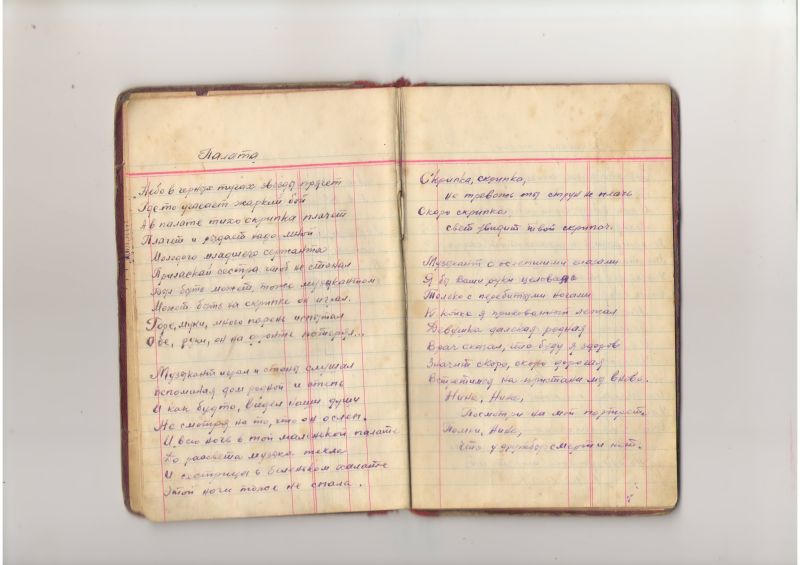 Палата
Небо в черных тучах звезды прячет
Где то угасает жаркий бой
А в палате тихо скрипка плачет
Плачет и рыдает надо мной
Молодого младшего сержанта
Приласкай сестра чтоб не стонал
Был быть может, тоже музыкантом
Может быть на скрипке он играл.
Горе, муки, много парень испытал
Обе, руки, он на фронте потерял...
Музыкант играл и стоны слушал
вспоминая дом родной и степь
И как будто, видел наши души
Не смотря на то, что он ослеп.
И всю ночь в той маленькой палате
До рассвета музыка текла
И сестрица в беленьком халате
Этой ночи тоже не спала.
Скрипка, скрипка,
не тревожь ты струн не плачь
Скоро скрипка,
свет увидит твой скрипач.
Музыкант с ослепшими глазами
Я бы ваши руки целовал
Только с перебитыми ногами
К койке я прикованный лежал
Девушка далекая родная
Врач сказал, что буду я здоров
Значит скоро, скоро дорогая
Встретимся на пристани мы вновь.
Нина, Нина,
Посмотри на мой портрет.
Помни, Нина,
что у дружбы смерти нет.